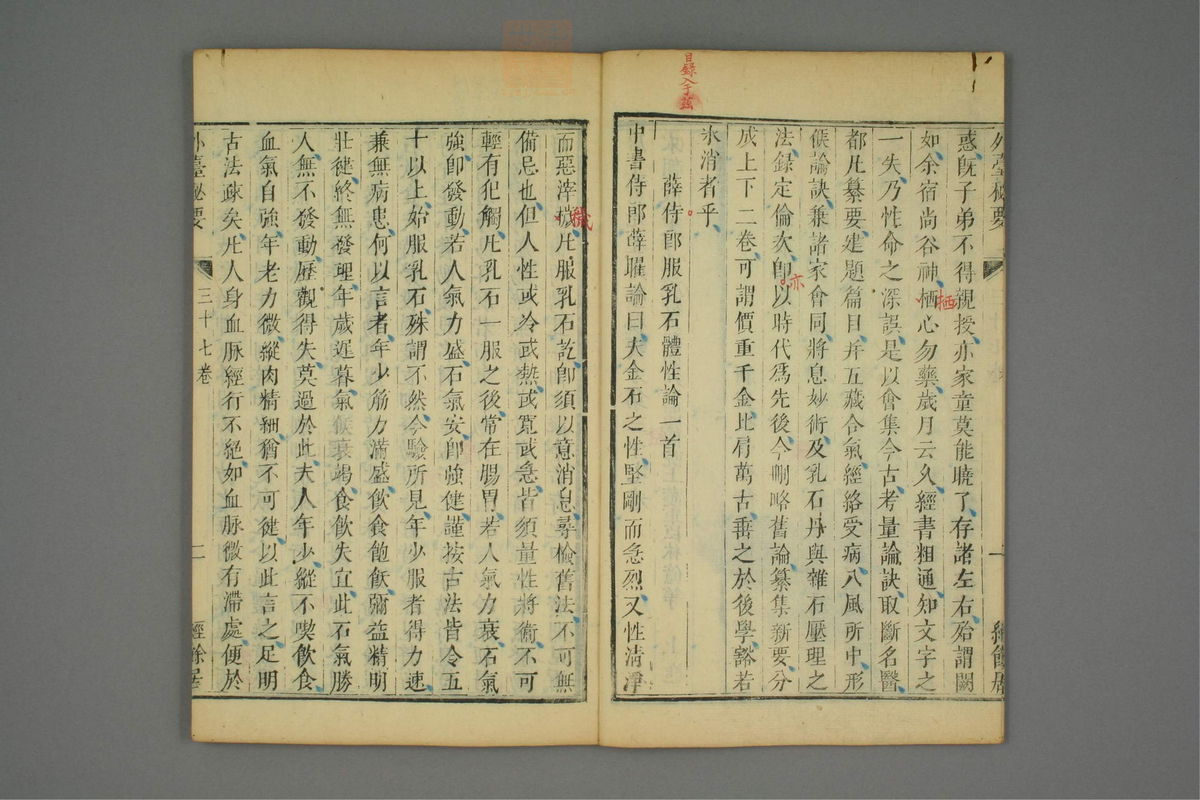 惑旣子弟不得覩授亦家童莫能曉了存諸左右殆謂闕
如余宿尚谷神栖心勿藥歲月云久經書粗通知文字之
一失乃性命之深誤是以會集今古考量論訣取斷名醫
都凡纂要建題篇目幷五藏合氣經絡受病八風所中形
候論訣兼諸家會同將息妙術及乳石丹與雜石壓理之
法錄定倫次卽以時代爲先後今刪略舊論纂集新要分
成上下二卷可謂價重千金比肩萬古垂之於後學豁若
氷消者乎
薛侍郎服乳石體性論一首
中書侍郎薛曜論曰夫金石之性堅剛而急烈又性淸淨
而惡滓穢凡服乳石訖卽須以意消息尋檢舊法不可無
備忌也但人性或冷或熱或寬或急皆須量性將衛不可
輕有犯觸凡乳石一服之後常在腸胃若人氣力衰石氣
強卽發動若人氣力盛石氣安卽強健謹按古法皆令五
十以上始服乳石殊謂不然今驗所見年少服者得力速
兼無病患何以言者年少筋力滿盛飲食飽飫彌益精明
壯健終無發理年歲遲暮氣候衰竭食飲失宜此石氣勝
人無不發動歷觀得失莫過於此夫人年少縱不喫飲食
血氣自強年老力微縱肉精細猶不可健以此言之足明
古法疎矣凡人身血脈經行不絕如血脈微有滯處便於
外臺秘要
三十七卷
二
經餘居
目錄入于茲
栖
亦
穢